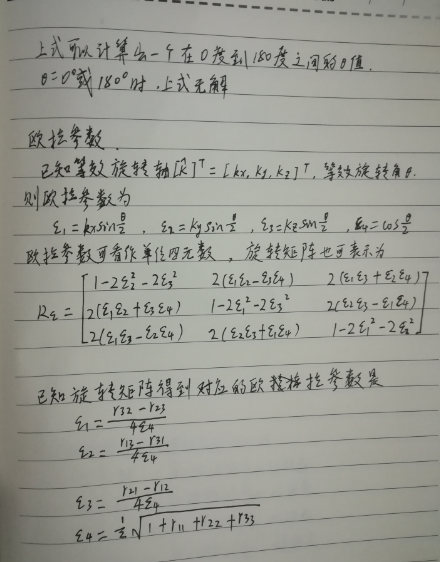 上式可以计算出一个在0度到180度之间的θ值.
θ=0°或180°时,上式无解
欧拉参数.
已知等效旋转轴[K̂]ᵀ=[kx, ky, kz]ᵀ, 等效旋转角θ.
则欧拉参数为
ε₁=kx sin θ/2, ε₂=ky sin θ/2, ε₃=kz sin θ/2, ε₄=cos θ/2
欧拉参数可看作单位四元数, 旋转矩阵也可表示为
Rε = [ 1-2ε₂²-2ε₃² 2(ε₁ε₂-ε₃ε₄) 2(ε₁ε₃+ε₂ε₄)
2(ε₁ε₂+ε₃ε₄) 1-2ε₁²-2ε₃² 2(ε₂ε₃-ε₁ε₄)
2(ε₁ε₃-ε₂ε₄) 2(ε₂ε₃+ε₁ε₄) 1-2ε₁²-2ε₂² ]
已知旋转矩阵得到对应的欧拉参数是
ε₁= (r32-r23)/4ε₄
ε₂= (r13-r31)/4ε₄
ε₃= (r21-r12)/4ε₄
ε₄= ½√(1+r11+r22+r33)